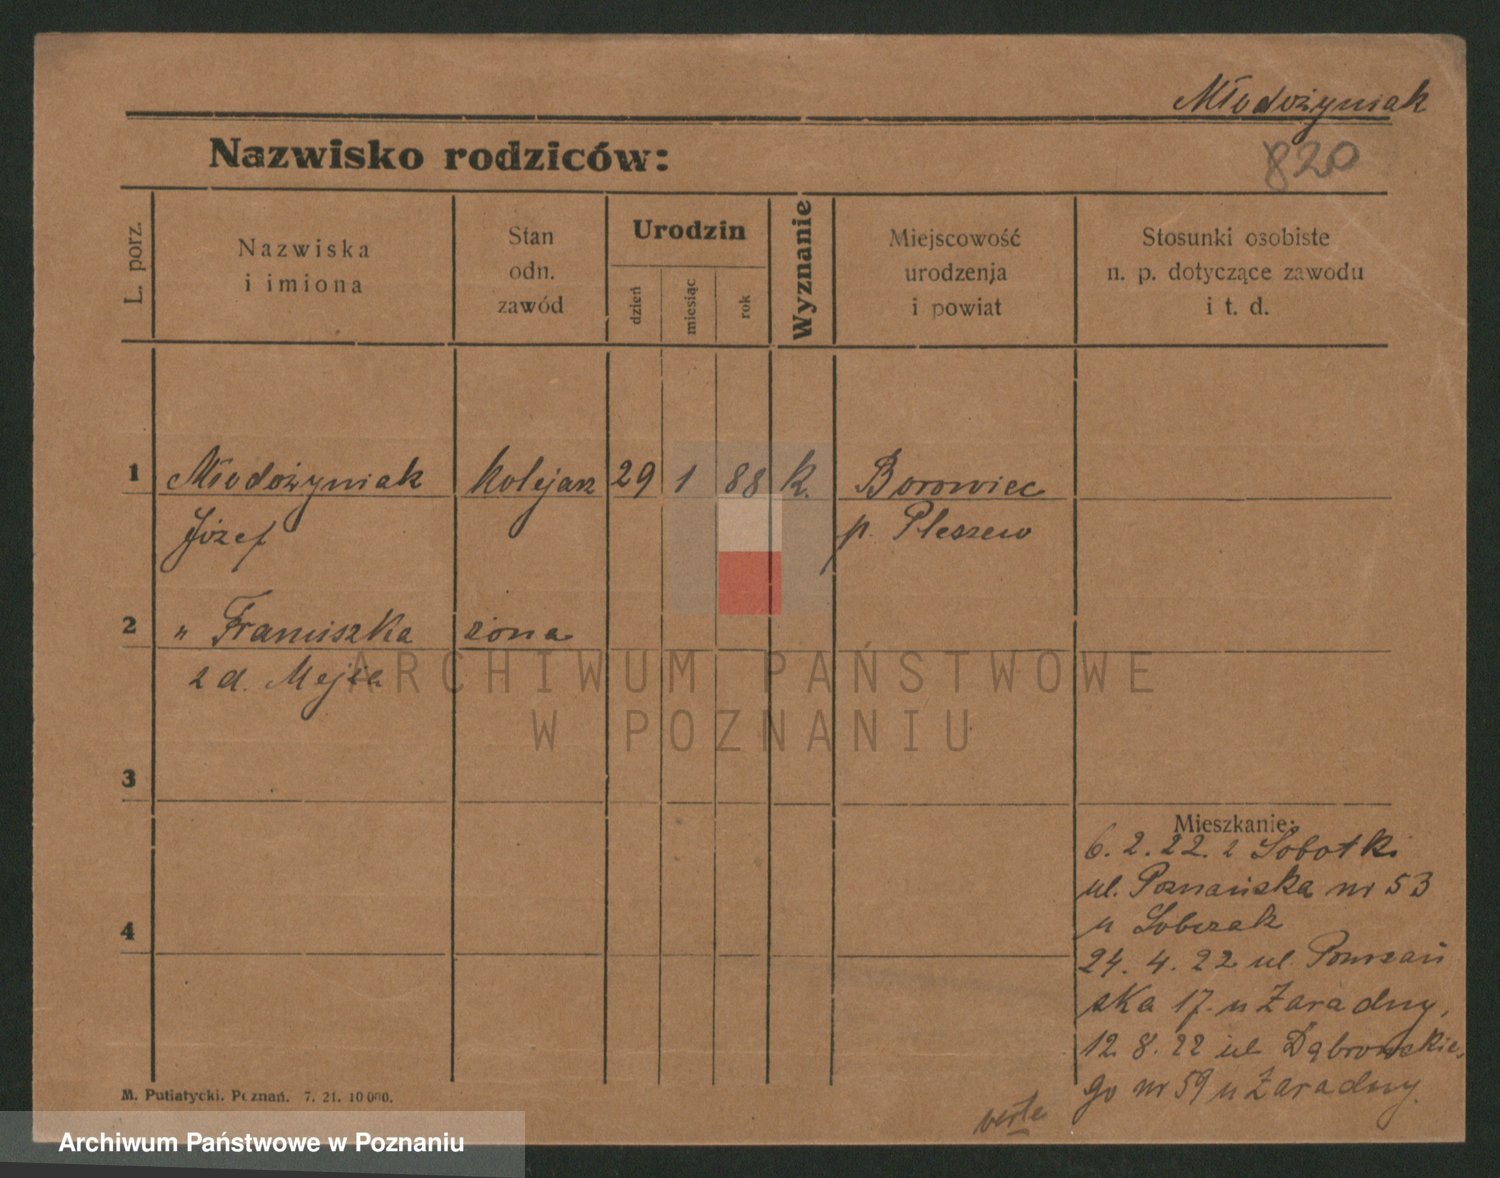 Młodożyniak
820
Nazwisko rodziców:
L. porz.
Nazwiska
i imiona
Stan
odn.
zawód
Urodzin
dzień
miesiąc
rok
Wyznanie
Miejscowość
urodzenja
i powiat
Stosunki osobiste
n. p. dotyczące zawodu
i t. d.
1 Młodożyniak kolejarz 29 1 88 k. Borowiec
Józef p. Pleszew
2 " Franciszka żona
z d. Mejza
3
4
Mieszkanie:
6. 2. 22. z Sobotki
ul. Poznańska nr 53
u Sobczak
24. 4. 22 ul. Poznań
ska 17. u Zaradny,
12. 8. 22 ul. Dąbrowskie
go nr 59 u Zaradny.
verte
M. Putiatycki. Poznań. 7. 21. 10 000.
ARCHIWUM PAŃSTWOWE
W POZNANIU
Archiwum Państwowe w Poznaniu